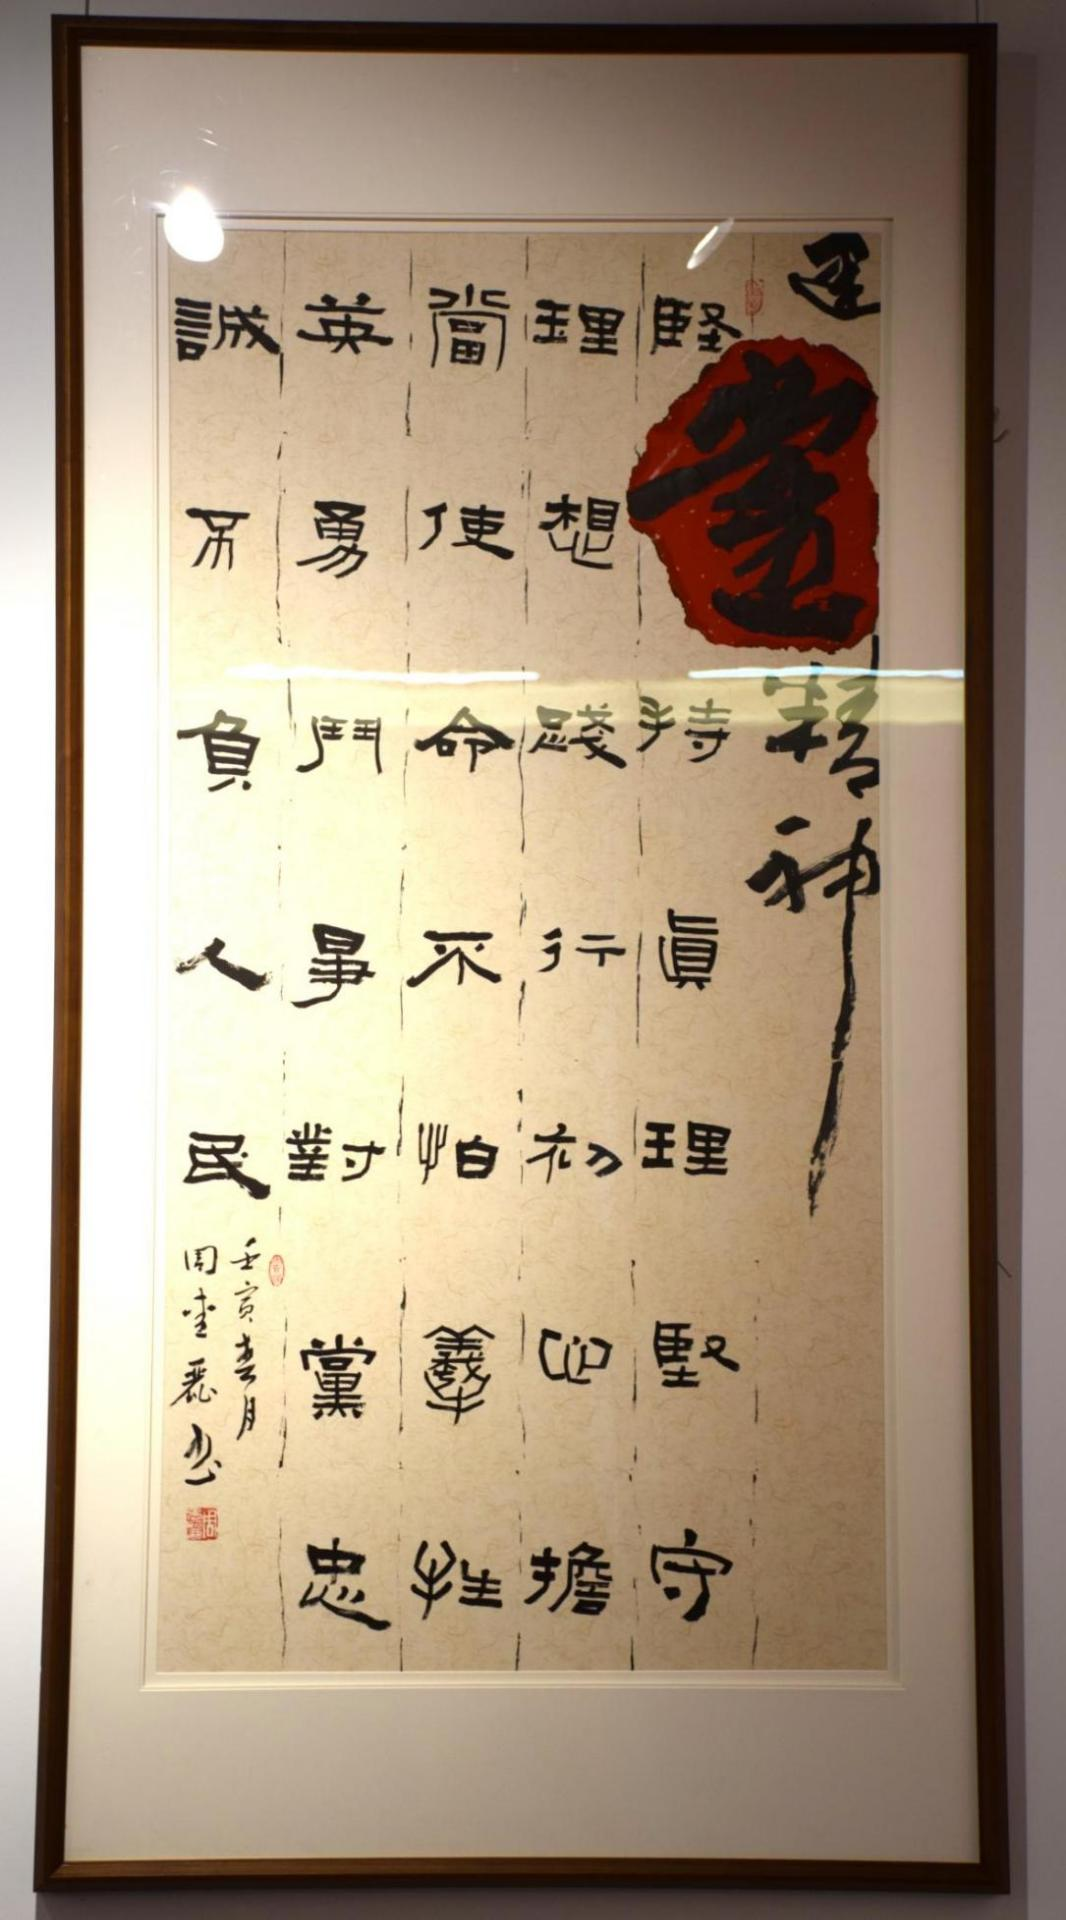 建党精神
堅持眞理堅守
理想踐行初心擔
當使命不怕犧牲
英勇鬥爭對黨忠
誠不負人民
壬寅春月
周麗书